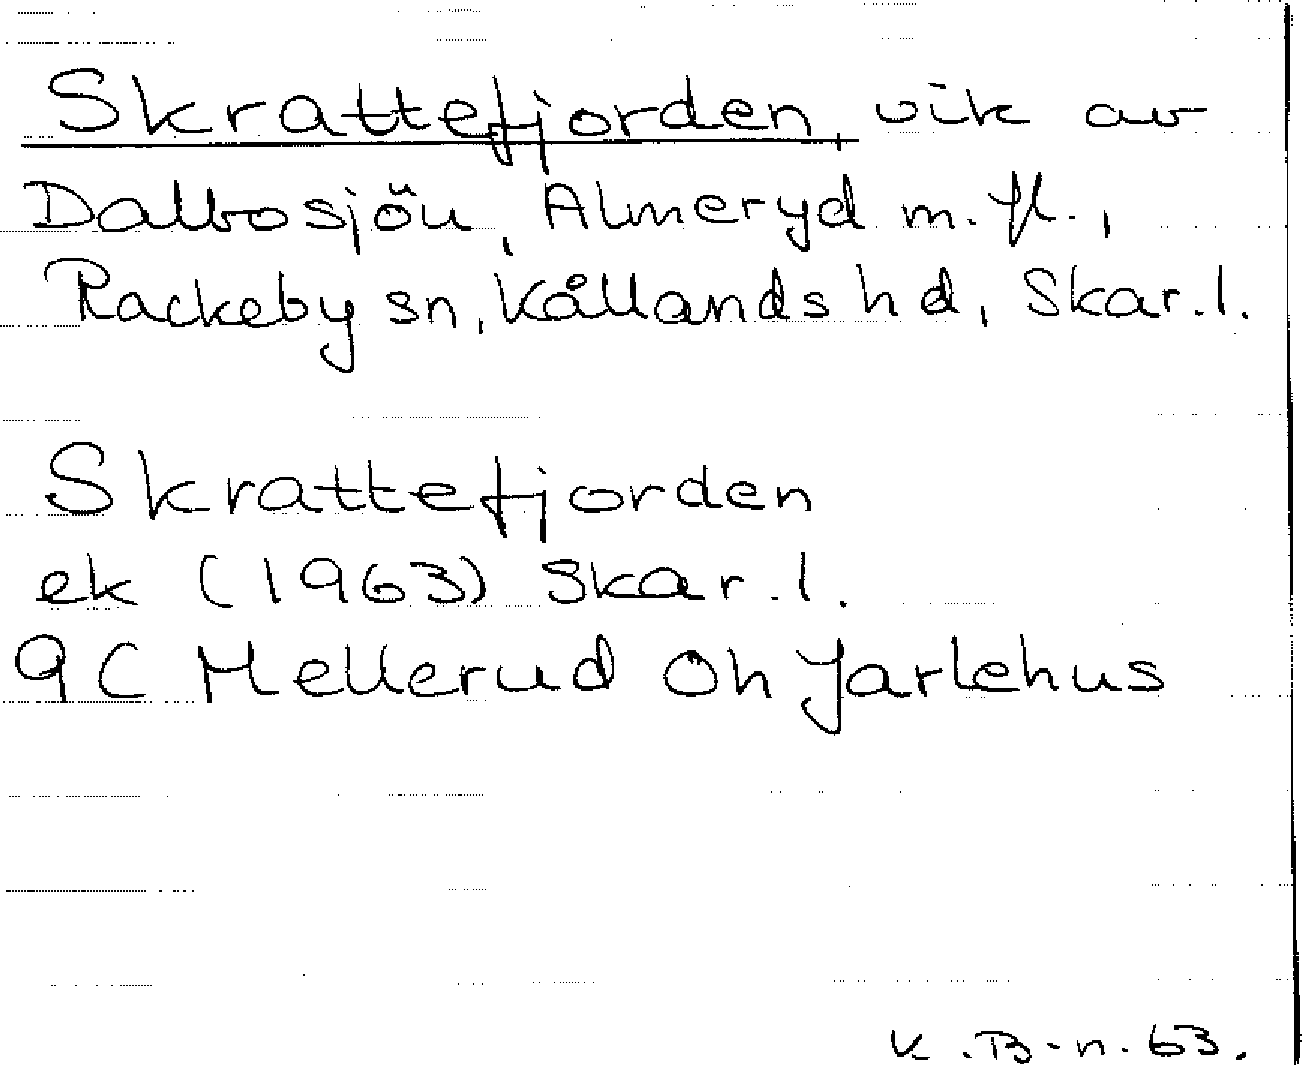 Skrattefjorden vik av
Dalbosjön, Almeryd m.fl.,
Rackeby sn, Kållands hd, Skar.l.
Skrattefjorden
ek (1963) Skar.l.
9C Mellerud Öh Jarlehus
K.B-n.63.